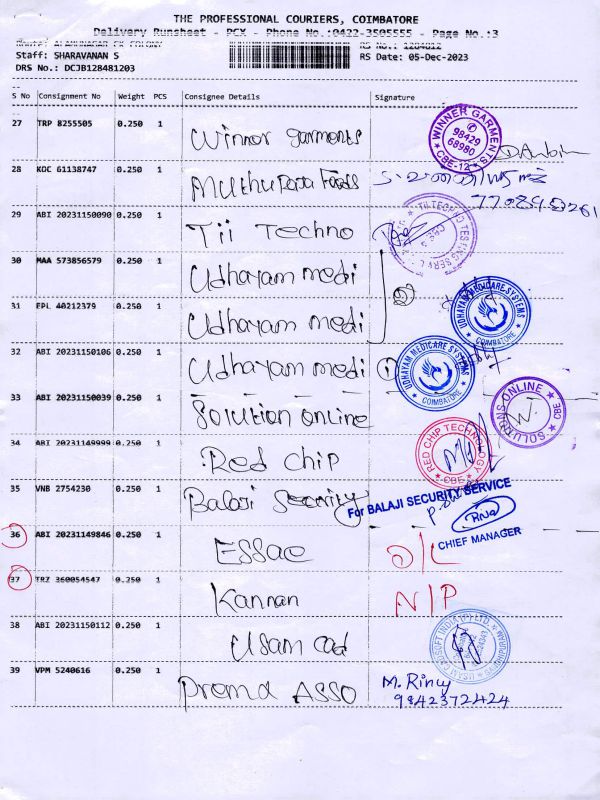 THE PROFESSIONAL COURIERS, COIMBATORE
Delivery Runsheet - PCX - Phone No.:0422-3505555 - Page No.:3
RS No.: 1284812
Staff: SHARAVANAN S
RS Date: 05-Dec-2023
DRS No.: DCJB128481203
S No Consignment No Weight PCS Consignee Details Signature
27 TRP 8255505 0.250 1 Winner garments
WINNER GARMENTS
98429
68980
CBE-12
28 KOC 61138747 0.250 1 Muthu Raja Foods
29 ABI 20231150090 0.250 1 Tii Techno
30 MAA 573856579 0.250 1 Udhayam medi
31 EPL 40212379 0.250 1 Udhayam medi
2
UDHAYAM MEDICARE SYSTEMS
COIMBATORE
32 ABI 20231150106 0.250 1 Udhayam medi
1
UDHAYAM MEDICARE SYSTEMS
COIMBATORE
33 ABI 20231150039 0.250 1 Solution online
SOLUTIONS ONLINE
CBE
34 ABI 20231149999 0.250 1 Red chip
RED CHIP TECHNOLOGY
CBE
35 VNB 2754230 0.250 1 Balaji Security
For BALAJI SECURITY SERVICE
CHIEF MANAGER
36 ABI 20231149846 0.250 1 ESSae
D/L
37 TRZ 360054547 0.250 1 Kannan
N/P
38 ABI 20231150112 0.250 1 Usam cad
39 VPM 5240616 0.250 1 Prema ASSO
M. Rincy
9842372424